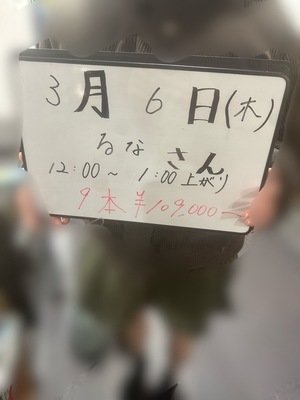 3月6日(木)
るなさん
12:00~1:00上がり
9本¥109,000-